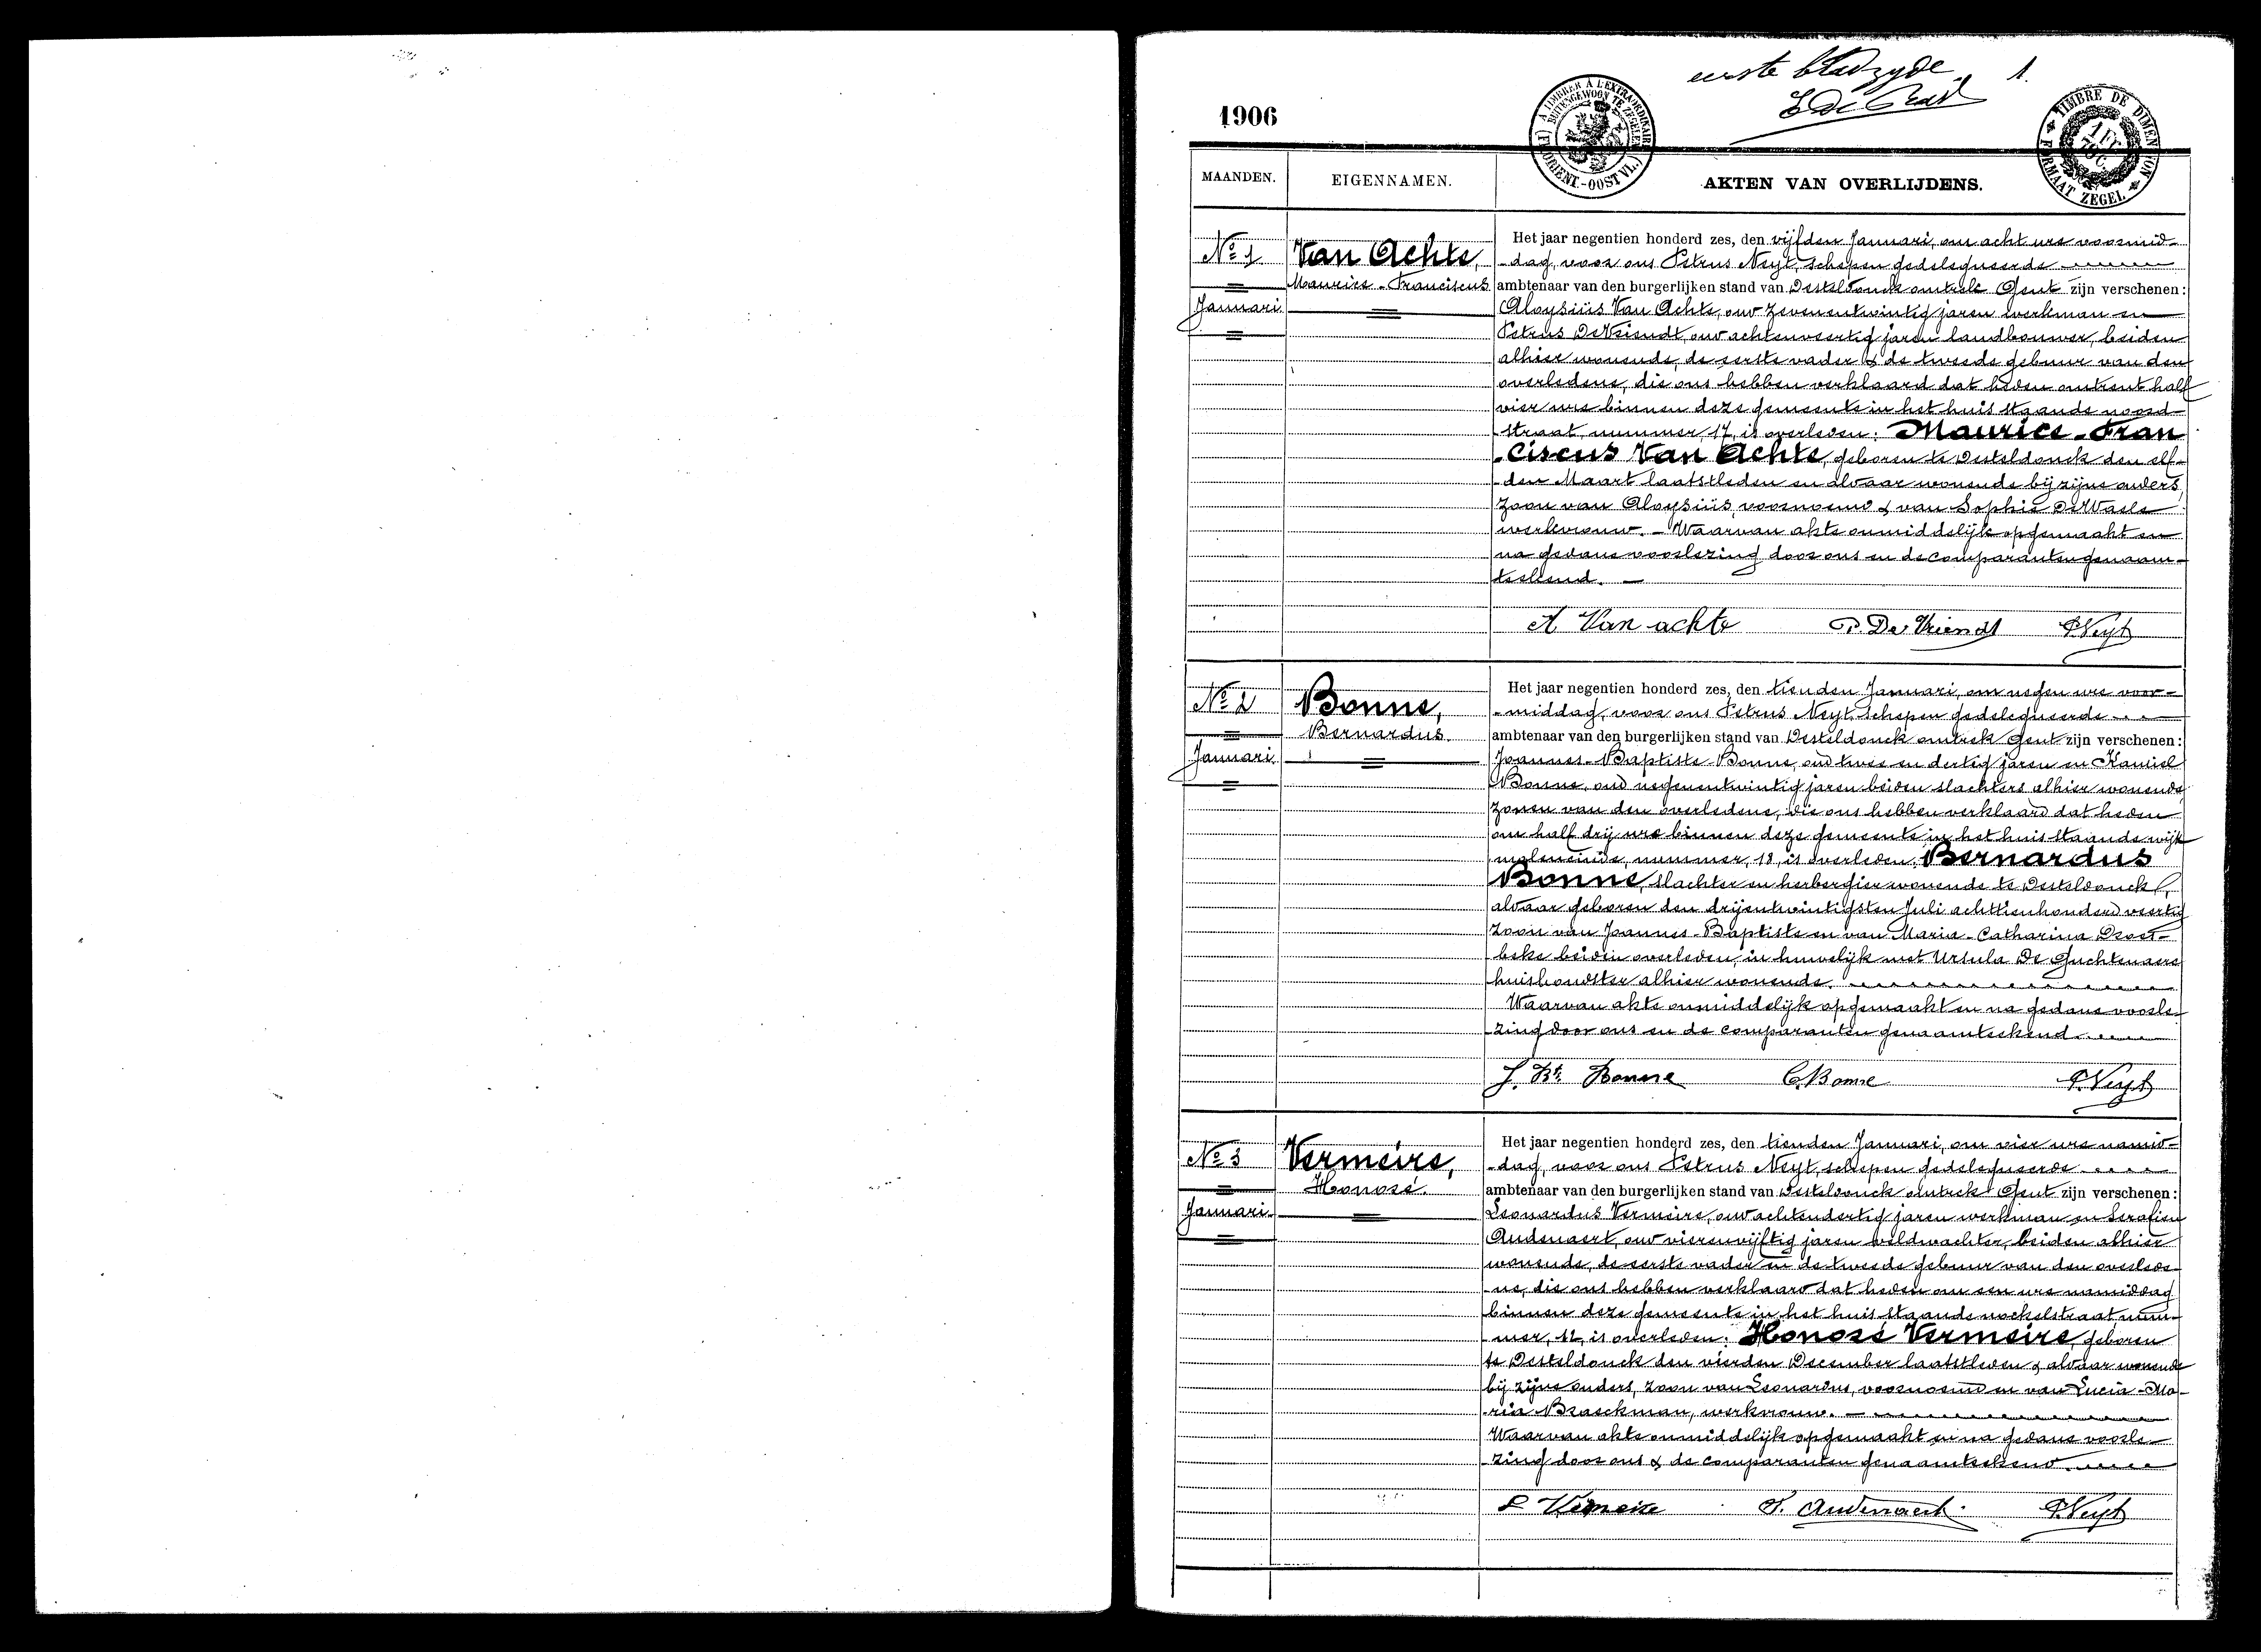 eerste bladzyde 1.
1906
A TIMBRER A L'EXTRAORDINAIRE
BUITENGEWOON TE ZEGELEN
(FL. ORIENT.-OOST VL.)
TIMBRE DE DIMENSION
FORMAAT ZEGEL
MAANDEN. EIGENNAMEN. AKTEN VAN OVERLIJDENS.
No 1
Januari
Van Achte,
Maurice-Franciscus
Het jaar negentien honderd zes, den vijfden Januari, om acht ure voormid-
-dag, voor ons Petrus Neyt, schepen gedelegueerde
ambtenaar van den burgerlijken stand van Desteldonck omtrek Gent zijn verschenen:
Aloysius Van Achte, oud zevenentwintig jaren werkman en
Petrus De Vriendt, oud achtenveertig jaren landbouwer, beiden
alhier wonende, de eerste vader & de tweede gebuur van den
overledene, die ons hebben verklaard dat heden omtrent half
vier ure binnen deze gemeente in het huis staande noord-
straat, nummer, 17, is overleden: Maurice-Fran
-ciscus Van Achte, geboren te Desteldonck den elf-
-den Maart laatstleden en aldaar wonende bij zijne ouders,
zoon van Aloysius, voornoemd & van Sophie De Waele
werkvrouw. - Waarvan akte onmiddelijk opgemaakt en
na gedane voorlezing door ons en de comparanten genaam-
teekend. -
A Van achte P. De Vriendt P. Neyt
No 2
Januari
Bonne,
Bernardus.
Het jaar negentien honderd zes, den tienden Januari, om negen ure voor-
-middag, voor ons Petrus Neyt, schepen gedelegueerde
ambtenaar van den burgerlijken stand van Desteldonck omtrek Gent zijn verschenen:
Joannes-Baptiste Bonne, oud twee en dertig jaren en Kamiel
Bonne, oud negenentwintig jaren beiden slachters alhier wonende,
zonen van den overledene, die ons hebben verklaard dat heden
om half drij ure binnen deze gemeente in het huis staande wijk
moleneinde, nummer, 18, is overleden: Bernardus
Bonne, slachter en herbergier wonende te Desteldonck,
aldaar geboren den drijentwintigsten Juli achttienhonderd veertig
zoon van Joannes-Baptiste en van Maria-Catharina Droes-
beke beiden overleden, in huwelijk met Ursula De Guchtenaere
huishoudster alhier wonende.
Waarvan akte onmiddelijk opgemaakt en na gedane voorle-
-zing door ons en de comparanten genaamteekend.
J. Bte Bonne C. Bonne P. Neyt
No 3
Januari
Vermeire,
Honoré.
Het jaar negentien honderd zes, den tienden Januari, om vier ure namid-
-dag, voor ons Petrus Neyt, schepen gedelegueerde
ambtenaar van den burgerlijken stand van Desteldonck omtrek Gent zijn verschenen:
Leonardus Vermeire, oud achtendertig jaren werkman en Serafien
Audenaert, oud vierenvijftig jaren veldwachter, beiden alhier
wonende, de eerste vader en de tweede gebuur van den overlede-
-ne, die ons hebben verklaard dat heden om een ure namiddag
binnen deze gemeente in het huis staande nockelstraat num-
-mer, 12, is overleden: Honoré Vermeire, geboren
te Desteldonck den vierden December laatstleden & aldaar wonende
bij zijne ouders, zoon van Leonardus, voornoemd en van Lucia-Ma-
-ria Braeckman, werkvrouw. -
Waarvan akte onmiddelijk opgemaakt en na gedane voorle-
-zing door ons & de comparanten genaamteekend.
L Vermeire S. Audenaert. P. Neyt